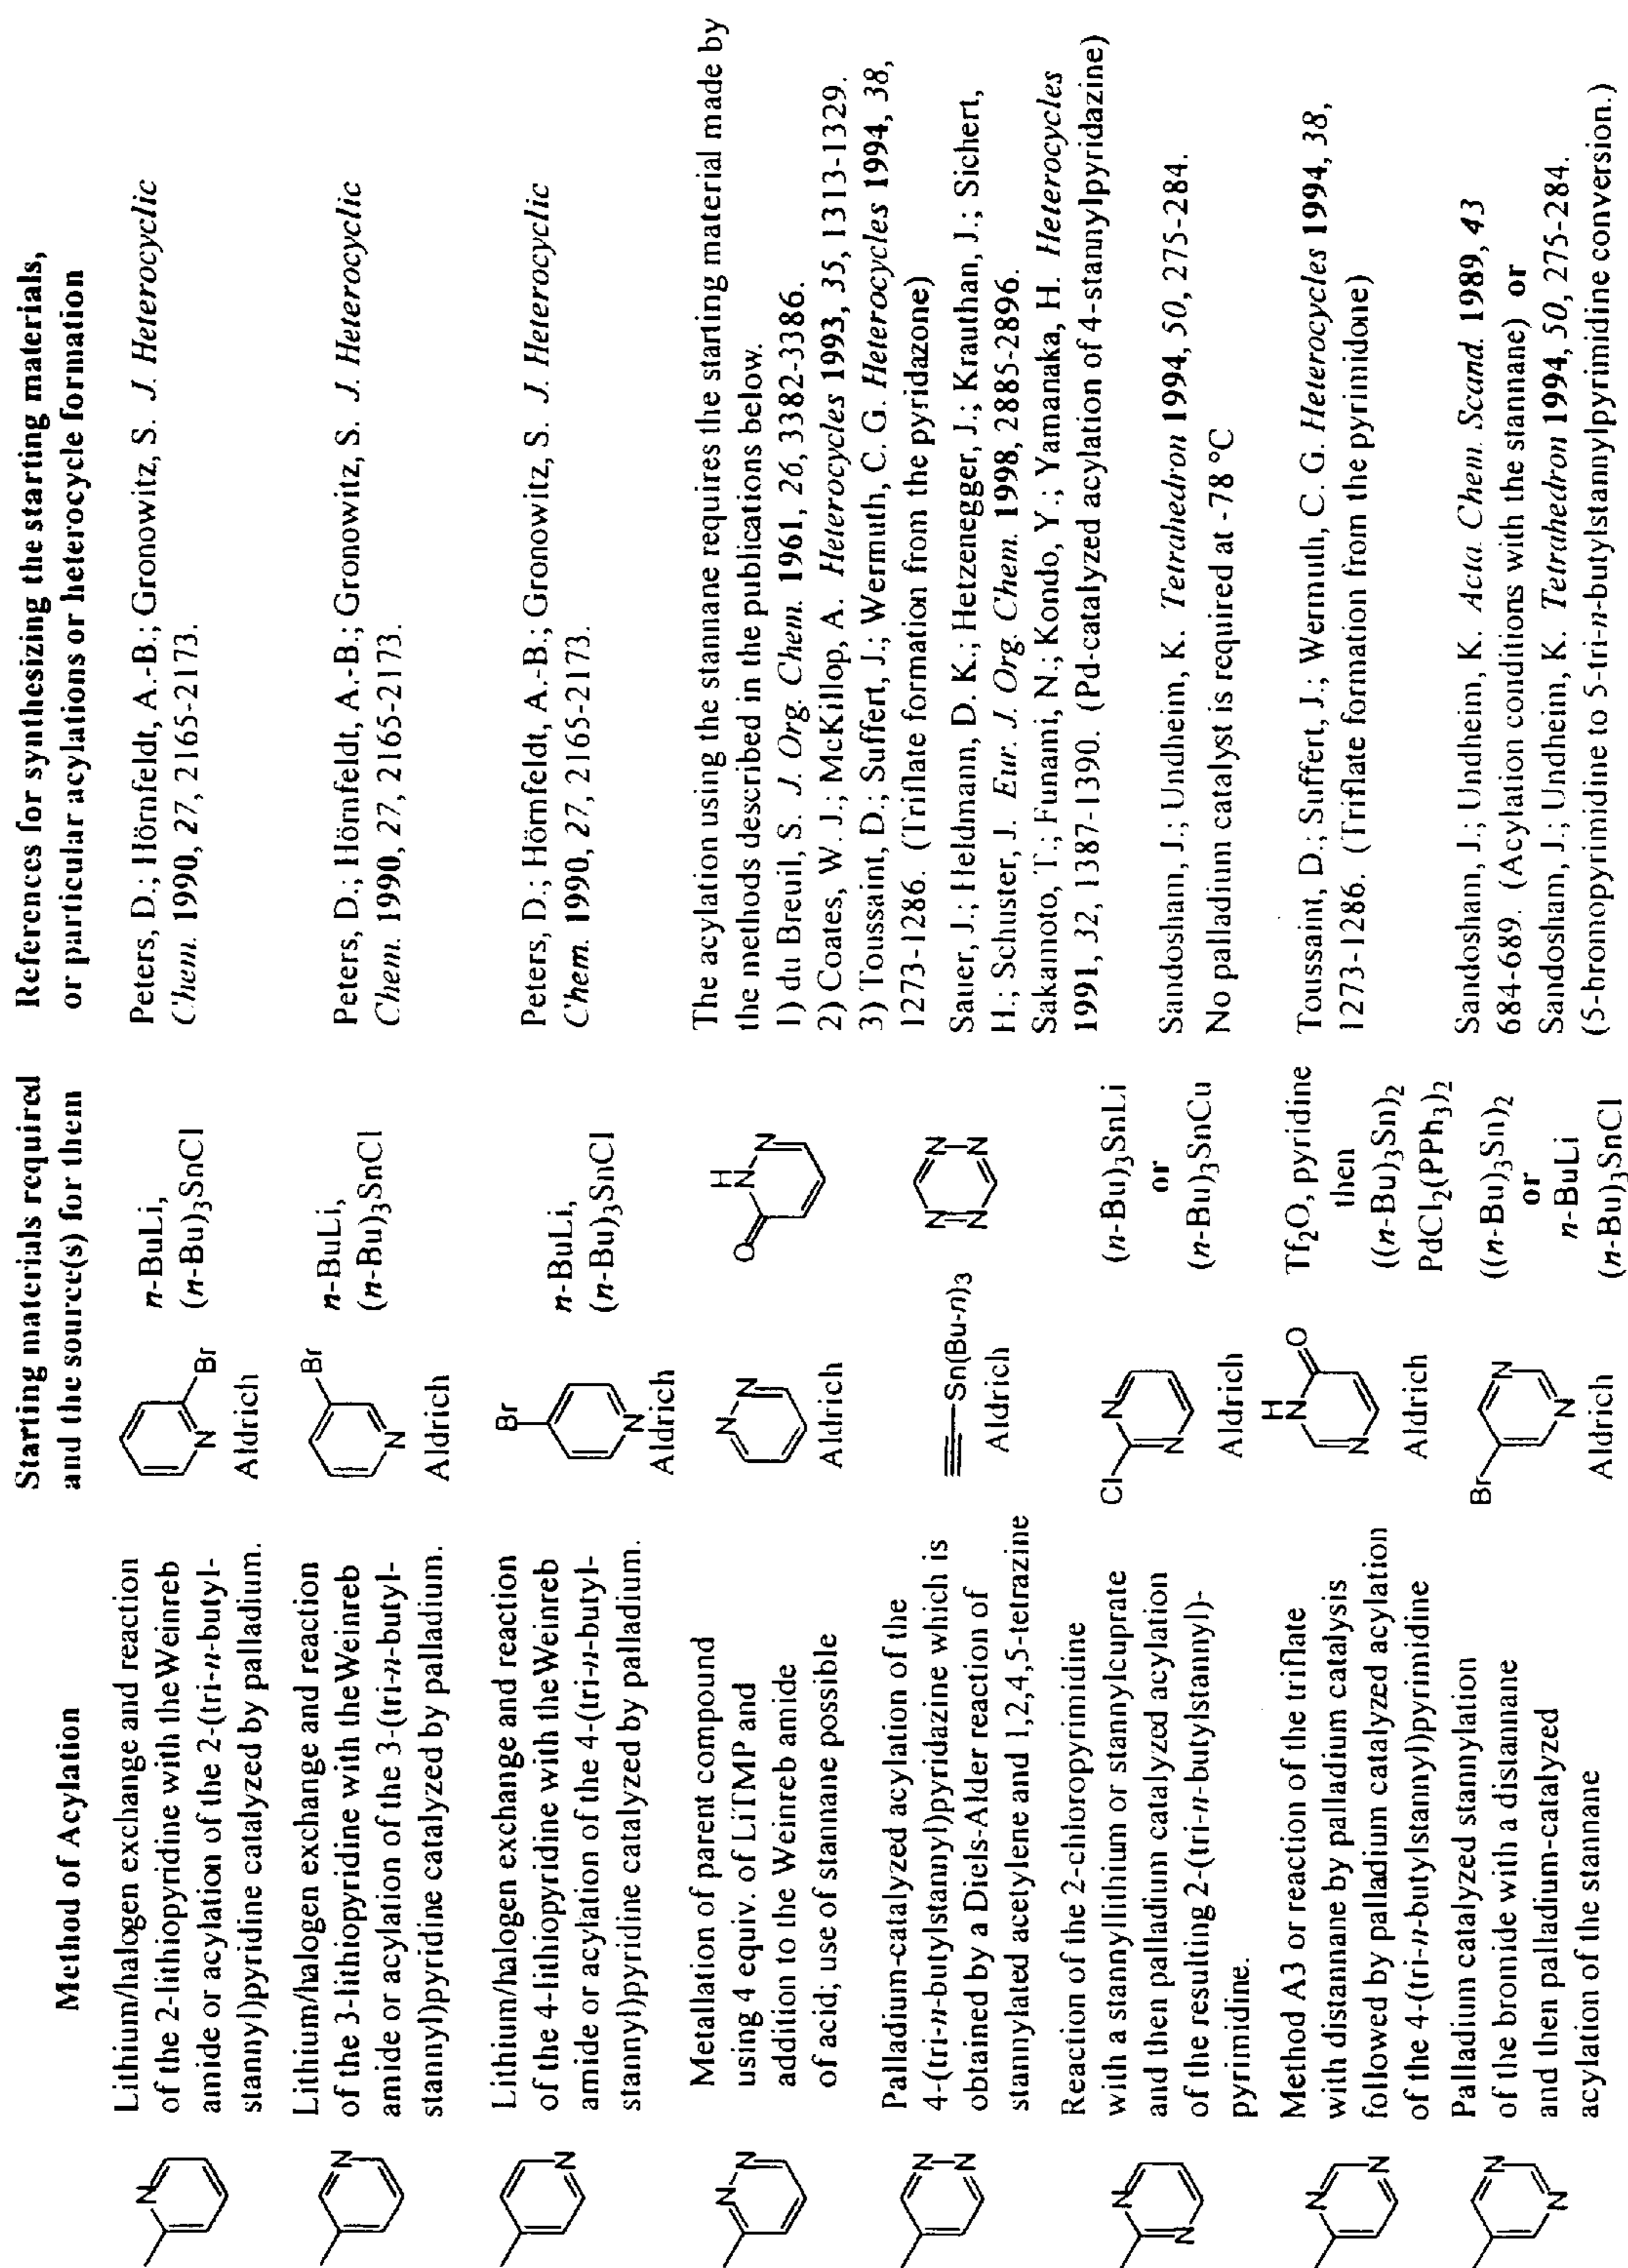 Method of Acylation
Starting materials required
and the source(s) for them
References for synthesizing the starting materials,
or particular acylations or heterocycle formation
N
Lithium/halogen exchange and reaction
of the 2-lithiopyridine with theWeinreb
amide or acylation of the 2-(tri-n-butyl-
stannyl)pyridine catalyzed by palladium.
N
Br
Aldrich
n-BuLi,
(n-Bu)3SnCl
Peters, D.; Hörnfeldt, A.-B.; Gronowitz, S. J. Heterocyclic
Chem. 1990, 27, 2165-2173.
N
Lithium/halogen exchange and reaction
of the 3-lithiopyridine with theWeinreb
amide or acylation of the 3-(tri-n-butyl-
stannyl)pyridine catalyzed by palladium.
Br
N
Aldrich
n-BuLi,
(n-Bu)3SnCl
Peters, D.; Hörnfeldt, A.-B.; Gronowitz, S. J. Heterocyclic
Chem. 1990, 27, 2165-2173.
N
Lithium/halogen exchange and reaction
of the 4-lithiopyridine with theWeinreb
amide or acylation of the 4-(tri-n-butyl-
stannyl)pyridine catalyzed by palladium.
Br
N
Aldrich
n-BuLi,
(n-Bu)3SnCl
Peters, D.; Hörnfeldt, A.-B.; Gronowitz, S. J. Heterocyclic
Chem. 1990, 27, 2165-2173.
N-N
Metallation of parent compound
using 4 equiv. of LiTMP and
addition to the Weinreb amide
of acid; use of stannane possible
N-N
Aldrich
O
H
N-N
The acylation using the stannane requires the starting material made by
the methods described in the publications below.
1) du Breuil, S. J. Org. Chem. 1961, 26, 3382-3386.
2) Coates, W. J.; McKillop, A. Heterocycles 1993, 35, 1313-1329.
3) Toussaint, D.; Suffert, J.; Wermuth, C. G. Heterocycles 1994, 38,
1273-1286. (Triflate formation from the pyridazone)
N-N
Palladium-catalyzed acylation of the
4-(tri-n-butylstannyl)pyridazine which is
obtained by a Diels-Alder reaction of
stannylated acetylene and 1,2,4,5-tetrazine
Sn(Bu-n)3
Aldrich
N=N
N-N
Sauer, J.; Heldmann, D. K.; Hetzenegger, J.; Krauthan, J.; Sichert,
H.; Schuster, J. Eur. J. Org. Chem. 1998, 2885-2896.
Sakamoto, T.; Funami, N.; Kondo, Y.; Yamanaka, H. Heterocycles
1991, 32, 1387-1390. (Pd-catalyzed acylation of 4-stannylpyridazine)
N
N
Reaction of the 2-chloropyrimidine
with a stannyllithium or stannylcuprate
and then palladium catalyzed acylation
of the resulting 2-(tri-n-butylstannyl)-
pyrimidine.
Cl
N
N
Aldrich
(n-Bu)3SnLi
or
(n-Bu)3SnCu
Sandosham, J.; Undheim, K. Tetrahedron 1994, 50, 275-284.
No palladium catalyst is required at -78 °C
N
N
Method A3 or reaction of the triflate
with distannane by palladium catalysis
followed by palladium catalyzed acylation
of the 4-(tri-n-butylstannyl)pyrimidine
H
N
O
N
Aldrich
Tf2O, pyridine
then
((n-Bu)3Sn)2
PdCl2(PPh3)2
Toussaint, D.; Suffert, J.; Wermuth, C. G. Heterocycles 1994, 38,
1273-1286. (Triflate formation from the pyrimidone)
N
N
Palladium catalyzed stannylation
of the bromide with a distannane
and then palladium-catalyzed
acylation of the stannane
Br
N
N
Aldrich
((n-Bu)3Sn)2
or
n-BuLi
(n-Bu)3SnCl
Sandosham, J.; Undheim, K. Acta. Chem. Scand. 1989, 43
684-689. (Acylation conditions with the stannane) or
Sandosham, J.; Undheim, K. Tetrahedron 1994, 50, 275-284.
(5-bromopyrimidine to 5-tri-n-butylstannylpyrimidine conversion.)